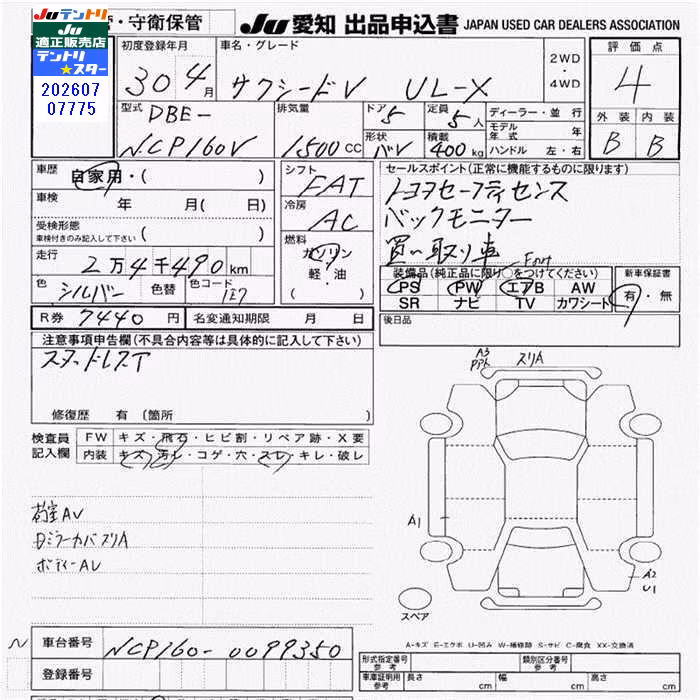 JUテントリ
適正販売店
テントリ
★スター
202607
07775
・守衛保管 JU 愛知 出品申込書 JAPAN USED CAR DEALERS ASSOCIATION
初度登録年月 車名・グレード 2WD・4WD 評価点
30 4月 サクシードV UL-X 4
型式 排気量 ドア 5 定員 5人 ディーラー・並行 外装 内装
DBE-
NCP160V 1500CC 形状 バV 積載 400kg モデル年式 年 B B
ハンドル 左・右
車歴 自家用・( ) シフト FAT セールスポイント(正常に機能するものに限ります)
車検 年 月( 日) 冷房 AC トヨタセーフティセンス
受検形態 バックモニター
車検付きのみ記入して下さい ( ) 燃料 ガソリン 買い取り車
走行 2万4千490km 軽・油 装備品(純正品に限り○をつけてください) 新車保証書
色 シルバー 色替 色コード 1E7 ( ) PS PW エアB AW 有・無
SR ナビ TV カワシート
R券 7440円 名変通知期限 月 日 後日品
注意事項申告欄(不具合内容等は具体的に記入して下さい)
スタットレスT
修復歴 有(箇所 )
検査員 FW キズ・飛石・ヒビ割・リペア跡・X要
記入欄 内装 キズ・汚レ・コゲ・穴・スレ・キレ・破レ
荷室AV
DミラーカバスリA
ボディーAV
A3
スリA
A1
A2
U1
スペア
A-キズ E-エクボ U-凹み W-補修跡 S-サビ C-腐食 XX-交換済
車台番号 NCP160-0099350
登録番号
形式指定番号 参考 類別区分番号 参考
車庫証明用 参考 長さ cm 幅 cm 高さ cm